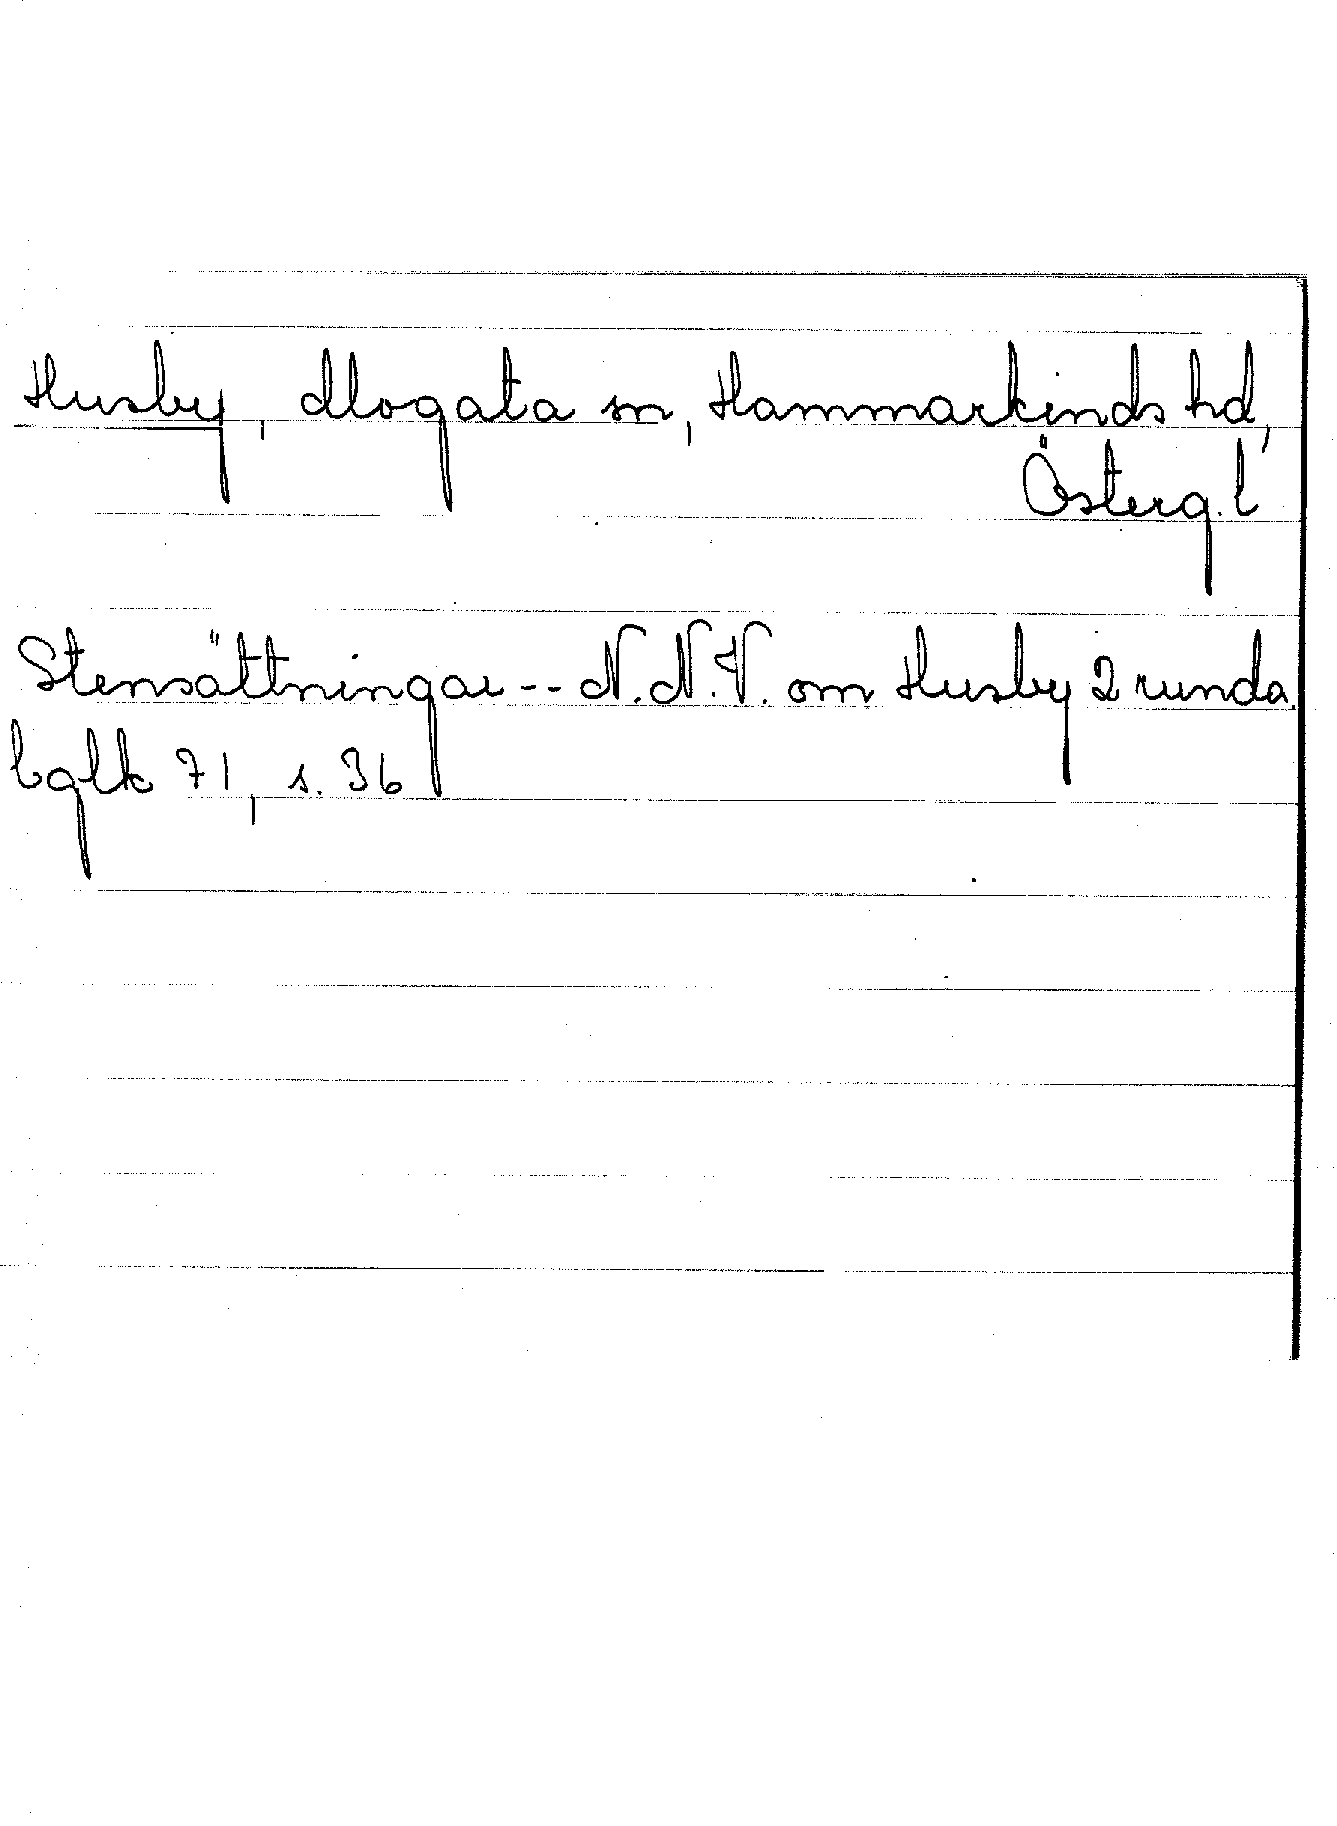 Husby, Mogata sn, Hammarkinds hd,
Österg. l
Stensättningar -- N.N.V. om Husby 2 runda.
bglk 71, s. 36